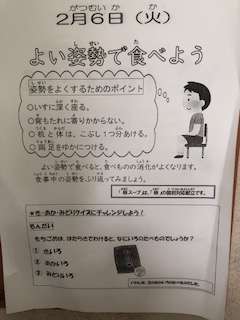 がつむいか か
2月6日(火)
しせい た
よい姿勢で食べよう
姿勢をよくするためのポイント
○いすに深く座る。
○背もたれに寄りかからない。
○机と体は、こぶし1つ分あける。
○両足をゆかにつける。
よい姿勢で食べると、食べものの消化がよくなります。
食事中の姿勢をふり返ってみましょう。
★き・あか・みどりクイズにチャレンジしよう!
もんだい
もちごめは、はたらきでわけると、なにいろのたべものでしょうか?
① きいろ
② あかいろ
③ みどりいろ